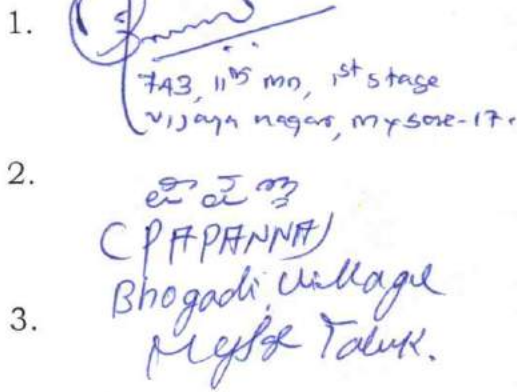 1.
743, 11th mn, 1st stage
vijaya nagar, mysore-17.
2.
(PAPANNA)
Bhogadi village
3.
Taluk.